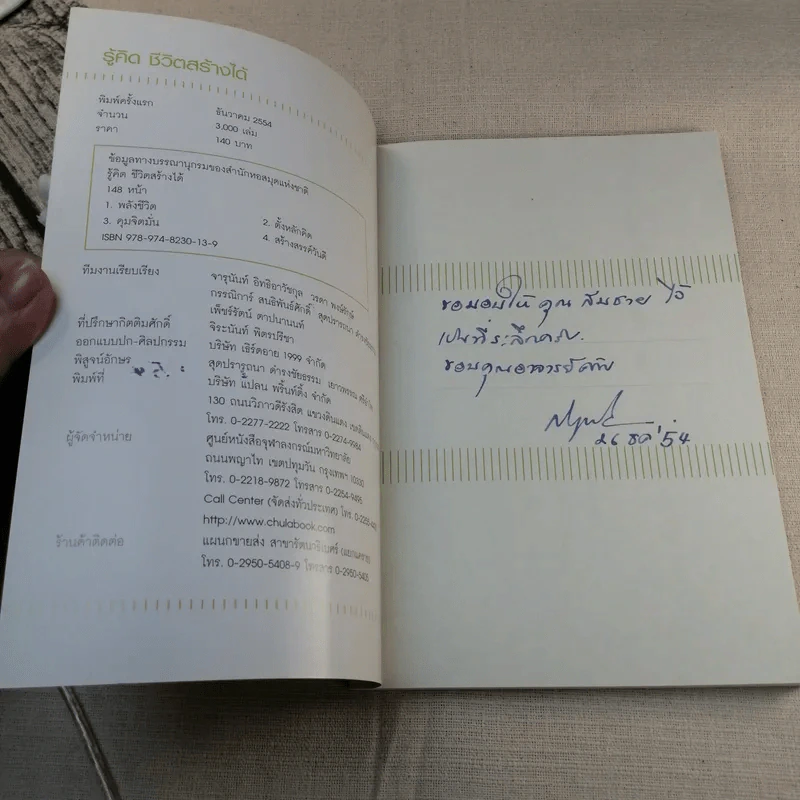 รู้คิด ชีวิตสร้างได้
พิมพ์ครั้งแรก ธันวาคม 2554
จำนวน 3,000 เล่ม
ราคา 140 บาท
ข้อมูลทางบรรณานุกรมของสำนักหอสมุดแห่งชาติ
รู้คิด ชีวิตสร้างได้
148 หน้า
1. พลังชีวิต 2. ตั้งหลักคิด
3. คุมจิตมั่น 4. สร้างสรรค์วันดี
ISBN 978-974-8230-13-9
ทีมงานเรียบเรียง จารุนันท์ อิทธิอาวัชกุล วรดา
กรรณิการ์ สนธิพันธ์ศักดิ์ สุดปรารถนา
เพ็ชร์รัตน์ ตาปนานนท์
ที่ปรึกษากิตติมศักดิ์ จิระนันท์ พิตรปรีชา
ออกแบบปก-ศิลปกรรม บริษัท เธิร์ดอาย 1999 จำกัด
พิสูจน์อักษร สุดปรารถนา ดำรงชัยธรรม เยาวพรรณ
พิมพ์ที่ บริษัท แปลน พริ้นท์ติ้ง จำกัด
130 ถนนวิภาวดีรังสิต แขวงดินแดง
โทร. 0-2277-2222 โทรสาร 0-2274-9984
ผู้จัดจำหน่าย ศูนย์หนังสือจุฬาลงกรณ์มหาวิทยาลัย
ถนนพญาไท เขตปทุมวัน กรุงเทพฯ 10330
โทร. 0-2218-9872 โทรสาร 0-2254-9495
Call Center (จัดส่งทั่วประเทศ) โทร.
http://www.chulabook.com
ร้านค้าติดต่อ แผนกขายส่ง สาขารัตนาธิเบศร์ (แยกแคราย)
โทร. 0-2950-5408-9 โทรสาร 0-2950-5405
ขอมอบให้ คุณ สมชาย ไว้
เป็นที่ระลึกครับ.
ขอบคุณอาจารย์ครับ
26 ธค '54